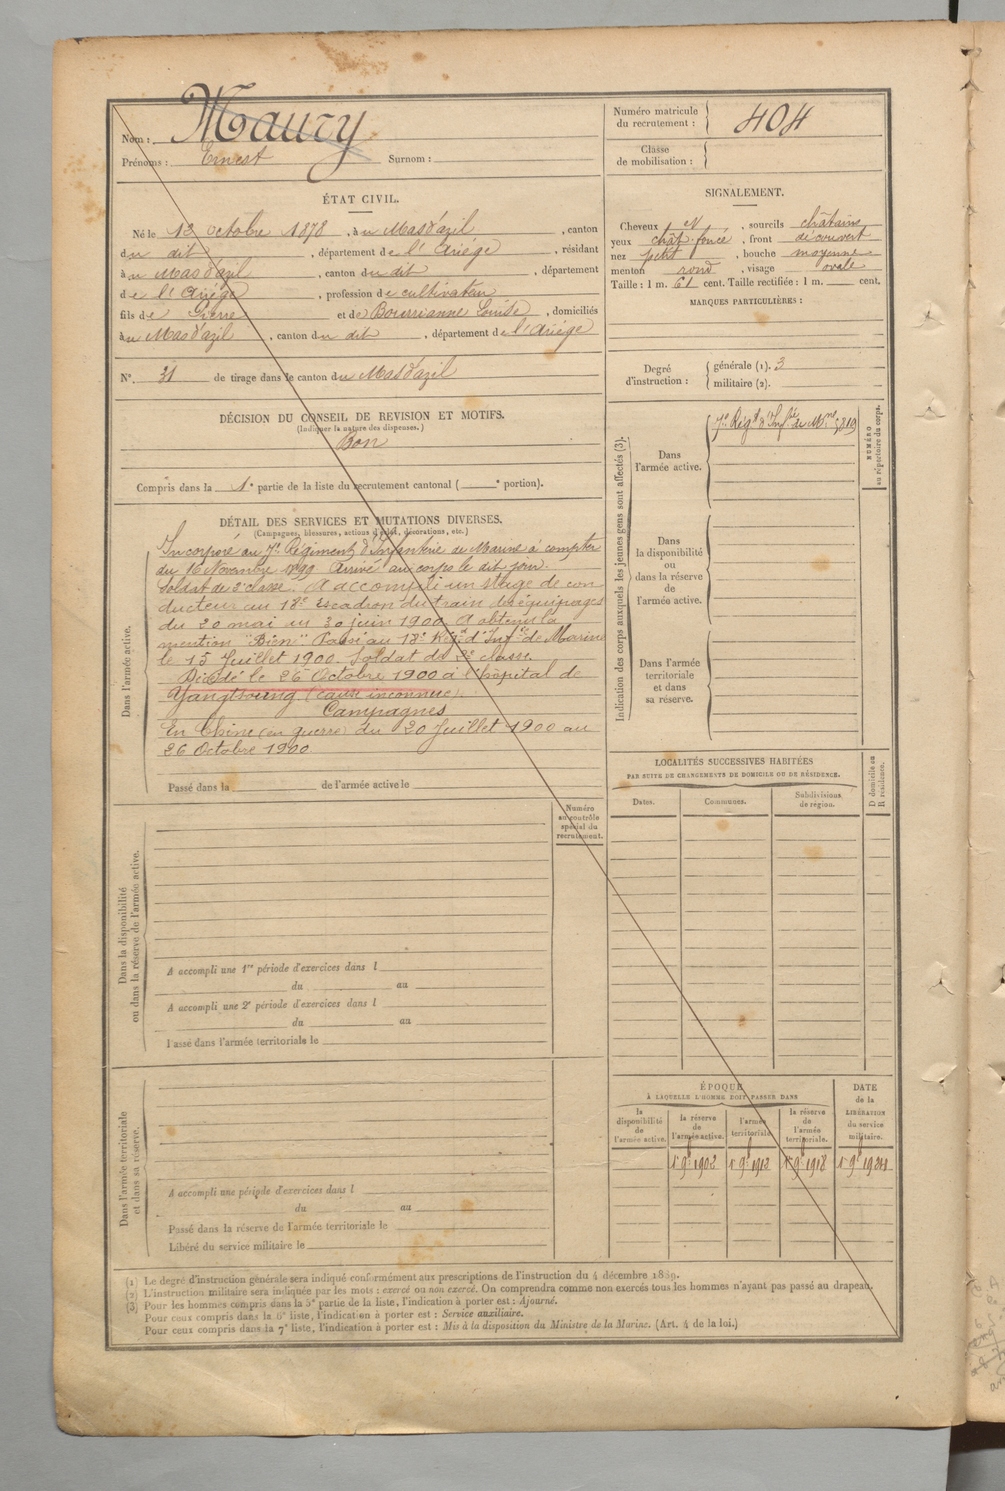 Nom : Maury
Prénoms : Ernest Surnom :
Numéro matricule du recrutement : 404
Classe de mobilisation :
ÉTAT CIVIL.
Né le 12 octobre 1878, à u Masd'azil, canton
du dit, département de l'Ariège, résidant
à u Mas d'azil, canton du dit, département
de l'Ariège, profession de cultivateur
fils de Pierre et de Bourrianne Louise, domiciliés
à u Masd'azil, canton du dit, département de l'Ariège
N° 31 de tirage dans le canton du Masd'azil
DÉCISION DU CONSEIL DE REVISION ET MOTIFS.
(Indiquer la nature des dispenses.)
Bon
Compris dans la 1e partie de la liste du recrutement cantonal ( e portion).
DÉTAIL DES SERVICES ET MUTATIONS DIVERSES.
(Campagnes, blessures, actions d'éclat, décorations, etc.)
Dans l'armée active.
Incorporé au 7e Régiment d'Infanterie de Marine à compter
du 16 Novembre 1899 Arrivé au corps le dit jour.
Soldat de 2e classe. A accompli un stage de con
ducteur au 18e Escadron du train des équipages
du 20 mai au 30 juin 1900 A obtenu la
mention "Bien" Passé au 18e Régt d'Infie de Marine
le 15 Juillet 1900. Soldat de 2e classe.
Décédé le 26 Octobre 1900 à l'hôpital de
Yangtsoung (cause inconnue).
Campagnes
En Chine (en guerre) du 20 Juillet 1900 au
26 Octobre 1900
Passé dans la de l'armée active le
Numéro au contrôle spécial du recrutement.
Dans la disponibilité
ou dans la réserve de l'armée active.
A accompli une 1re période d'exercices dans l
du au
A accompli une 2e période d'exercices dans l
du au
Passé dans l'armée territoriale le
Dans l'armée territoriale
et dans sa réserve.
A accompli une période d'exercices dans l
du au
Passé dans la réserve de l'armée territoriale le
Libéré du service militaire le
SIGNALEMENT.
Cheveux et, sourcils châtains
yeux chât. foncé, front découvert
nez petit, bouche moyenne
menton rond, visage ovale
Taille : 1 m. 61 cent. Taille rectifiée : 1 m. cent.
MARQUES PARTICULIÈRES :
Degré d'instruction :
générale (1). 3
militaire (2).
Indication des corps auxquels les jeunes gens sont affectés (3).
NUMÉRO au répertoire du corps.
Dans l'armée active.
7e Régt d'Infie de Mne
Dans la disponibilité ou dans la réserve de l'armée active.
Dans l'armée territoriale et dans sa réserve.
LOCALITÉS SUCCESSIVES HABITÉES
PAR SUITE DE CHANGEMENTS DE DOMICILE OU DE RÉSIDENCE.
D domicile ou R résidence.
Dates. Communes. Subdivisions de région.
ÉPOQUE
À LAQUELLE L'HOMME DOIT PASSER DANS
DATE de la LIBÉRATION du service militaire.
la disponibilité de l'armée active.
la réserve de l'armée active.
l'armée territoriale.
la réserve de l'armée territoriale.
1r 9bre 1902 1r 9bre 1912 1r 9bre 1918 1r 9bre 1924
(1) Le degré d'instruction générale sera indiqué conformément aux prescriptions de l'instruction du 4 décembre 1889.
(2) L'instruction militaire sera indiquée par les mots : exercé ou non exercé. On comprendra comme non exercés tous les hommes n'ayant pas passé au drapeau.
(3) Pour les hommes compris dans la 5e partie de la liste, l'indication à porter est : Ajourné.
Pour ceux compris dans la 6e liste, l'indication à porter est : Service auxiliaire.
Pour ceux compris dans la 7e liste, l'indication à porter est : Mis à la disposition du Ministre de la Marine. (Art. 4 de la loi.)